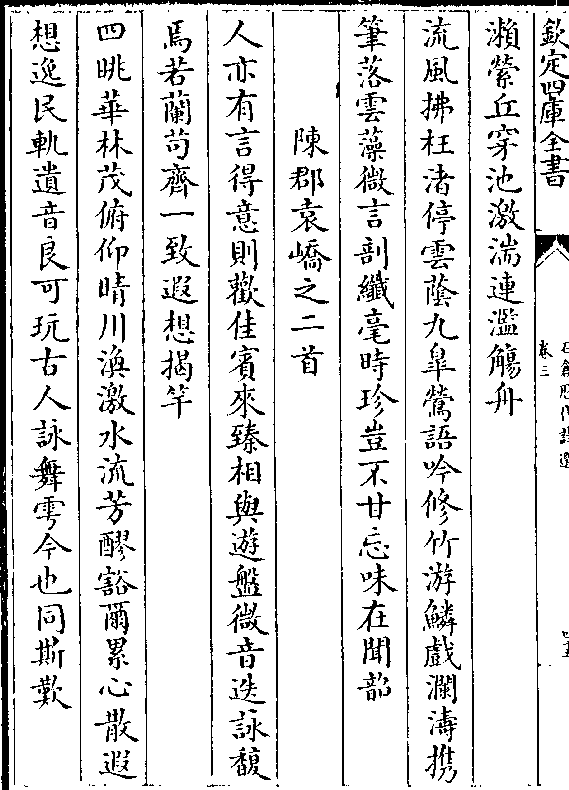 欽定四庫全書
卷三
瀨縈丘穿池激湍連濫觴舟
流風拂枉渚停雲蔭九臯鶯語吟修竹游鱗戲瀾濤携
筆落雲藻微言剖纖毫時珍豈不甘忘味在聞韶
陳郡袁嶠之二首
人亦有言得意則歡佳賓來臻相與遊盤微音迭詠馥
焉若蘭苟齊一致遐想揭竿
四眺華林茂俯仰晴川渙激水流芳醪豁爾累心散遐
想逸民軌遺音良可玩古人詠舞雩今也同斯歎